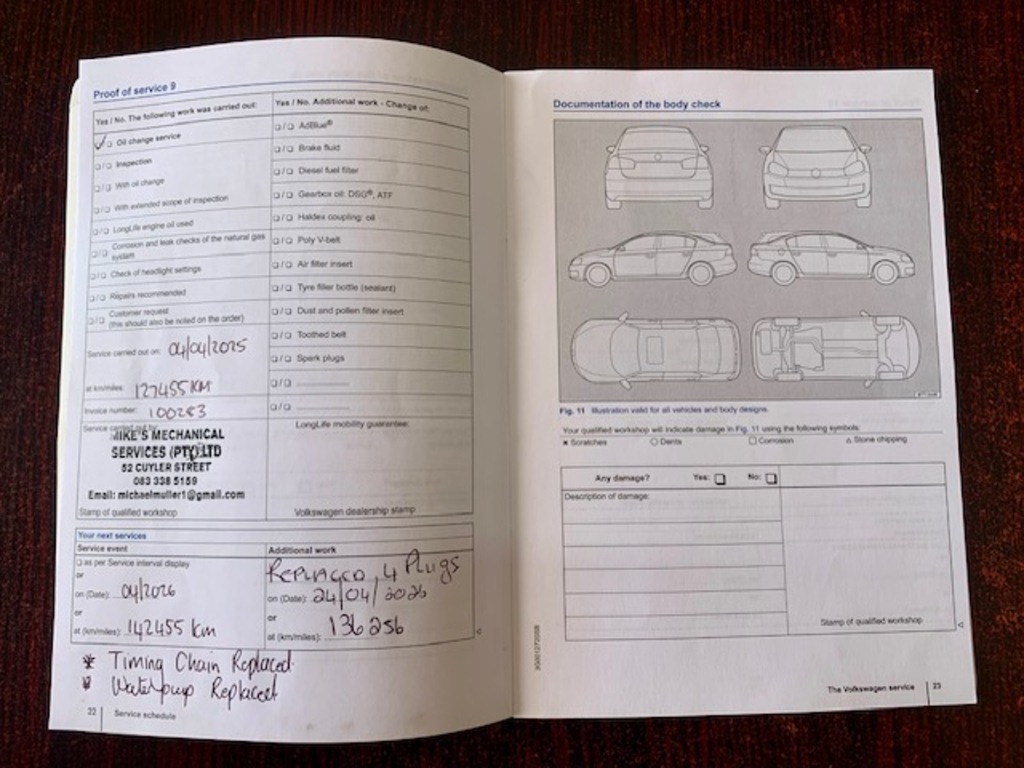 Proof of service 9
Yes / No. The following work was carried out:
Yes / No. Additional work - Change of:
Oil change service
Inspection
With oil change
With extended scope of inspection
LongLife engine oil used
Corrosion and leak checks of the natural gas
system
Check of headlight settings
Repairs recommended
Customer request
(this should also be noted on the order)
AdBlue®
Brake fluid
Diesel fuel filter
Gearbox oil: DSG®, ATF
Haldex coupling: oil
Poly V-belt
Air filter insert
Tyre filler bottle (sealant)
Dust and pollen filter insert
Toothed belt
Spark plugs
Service carried out on: 04/04/2025
at km/miles: 127455 KM
Invoice number: 100283
Service carried out by:
MIKE'S MECHANICAL
SERVICES (PTY) LTD
52 CUYLER STREET
083 338 5159
Email: michaelmuller1@gmail.com
Stamp of qualified workshop
LongLife mobility guarantee:
Volkswagen dealership stamp
Your next services
Service event
as per Service interval display
or
on (Date): 04/2026
or
at (km/miles): 142455 km
Additional work
REPLACED 4 Plugs
on (Date): 24/04/2026
or
at (km/miles): 136256
* Timing Chain Replaced
* Waterpump Replaced
22 Service schedule
Documentation of the body check
Fig. 11 Illustration valid for all vehicles and body designs.
Your qualified workshop will indicate damage in Fig. 11 using the following symbols:
Scratches Dents Corrosion Stone chipping
Any damage? Yes: No:
Description of damage:
Stamp of qualified workshop
The Volkswagen service 23